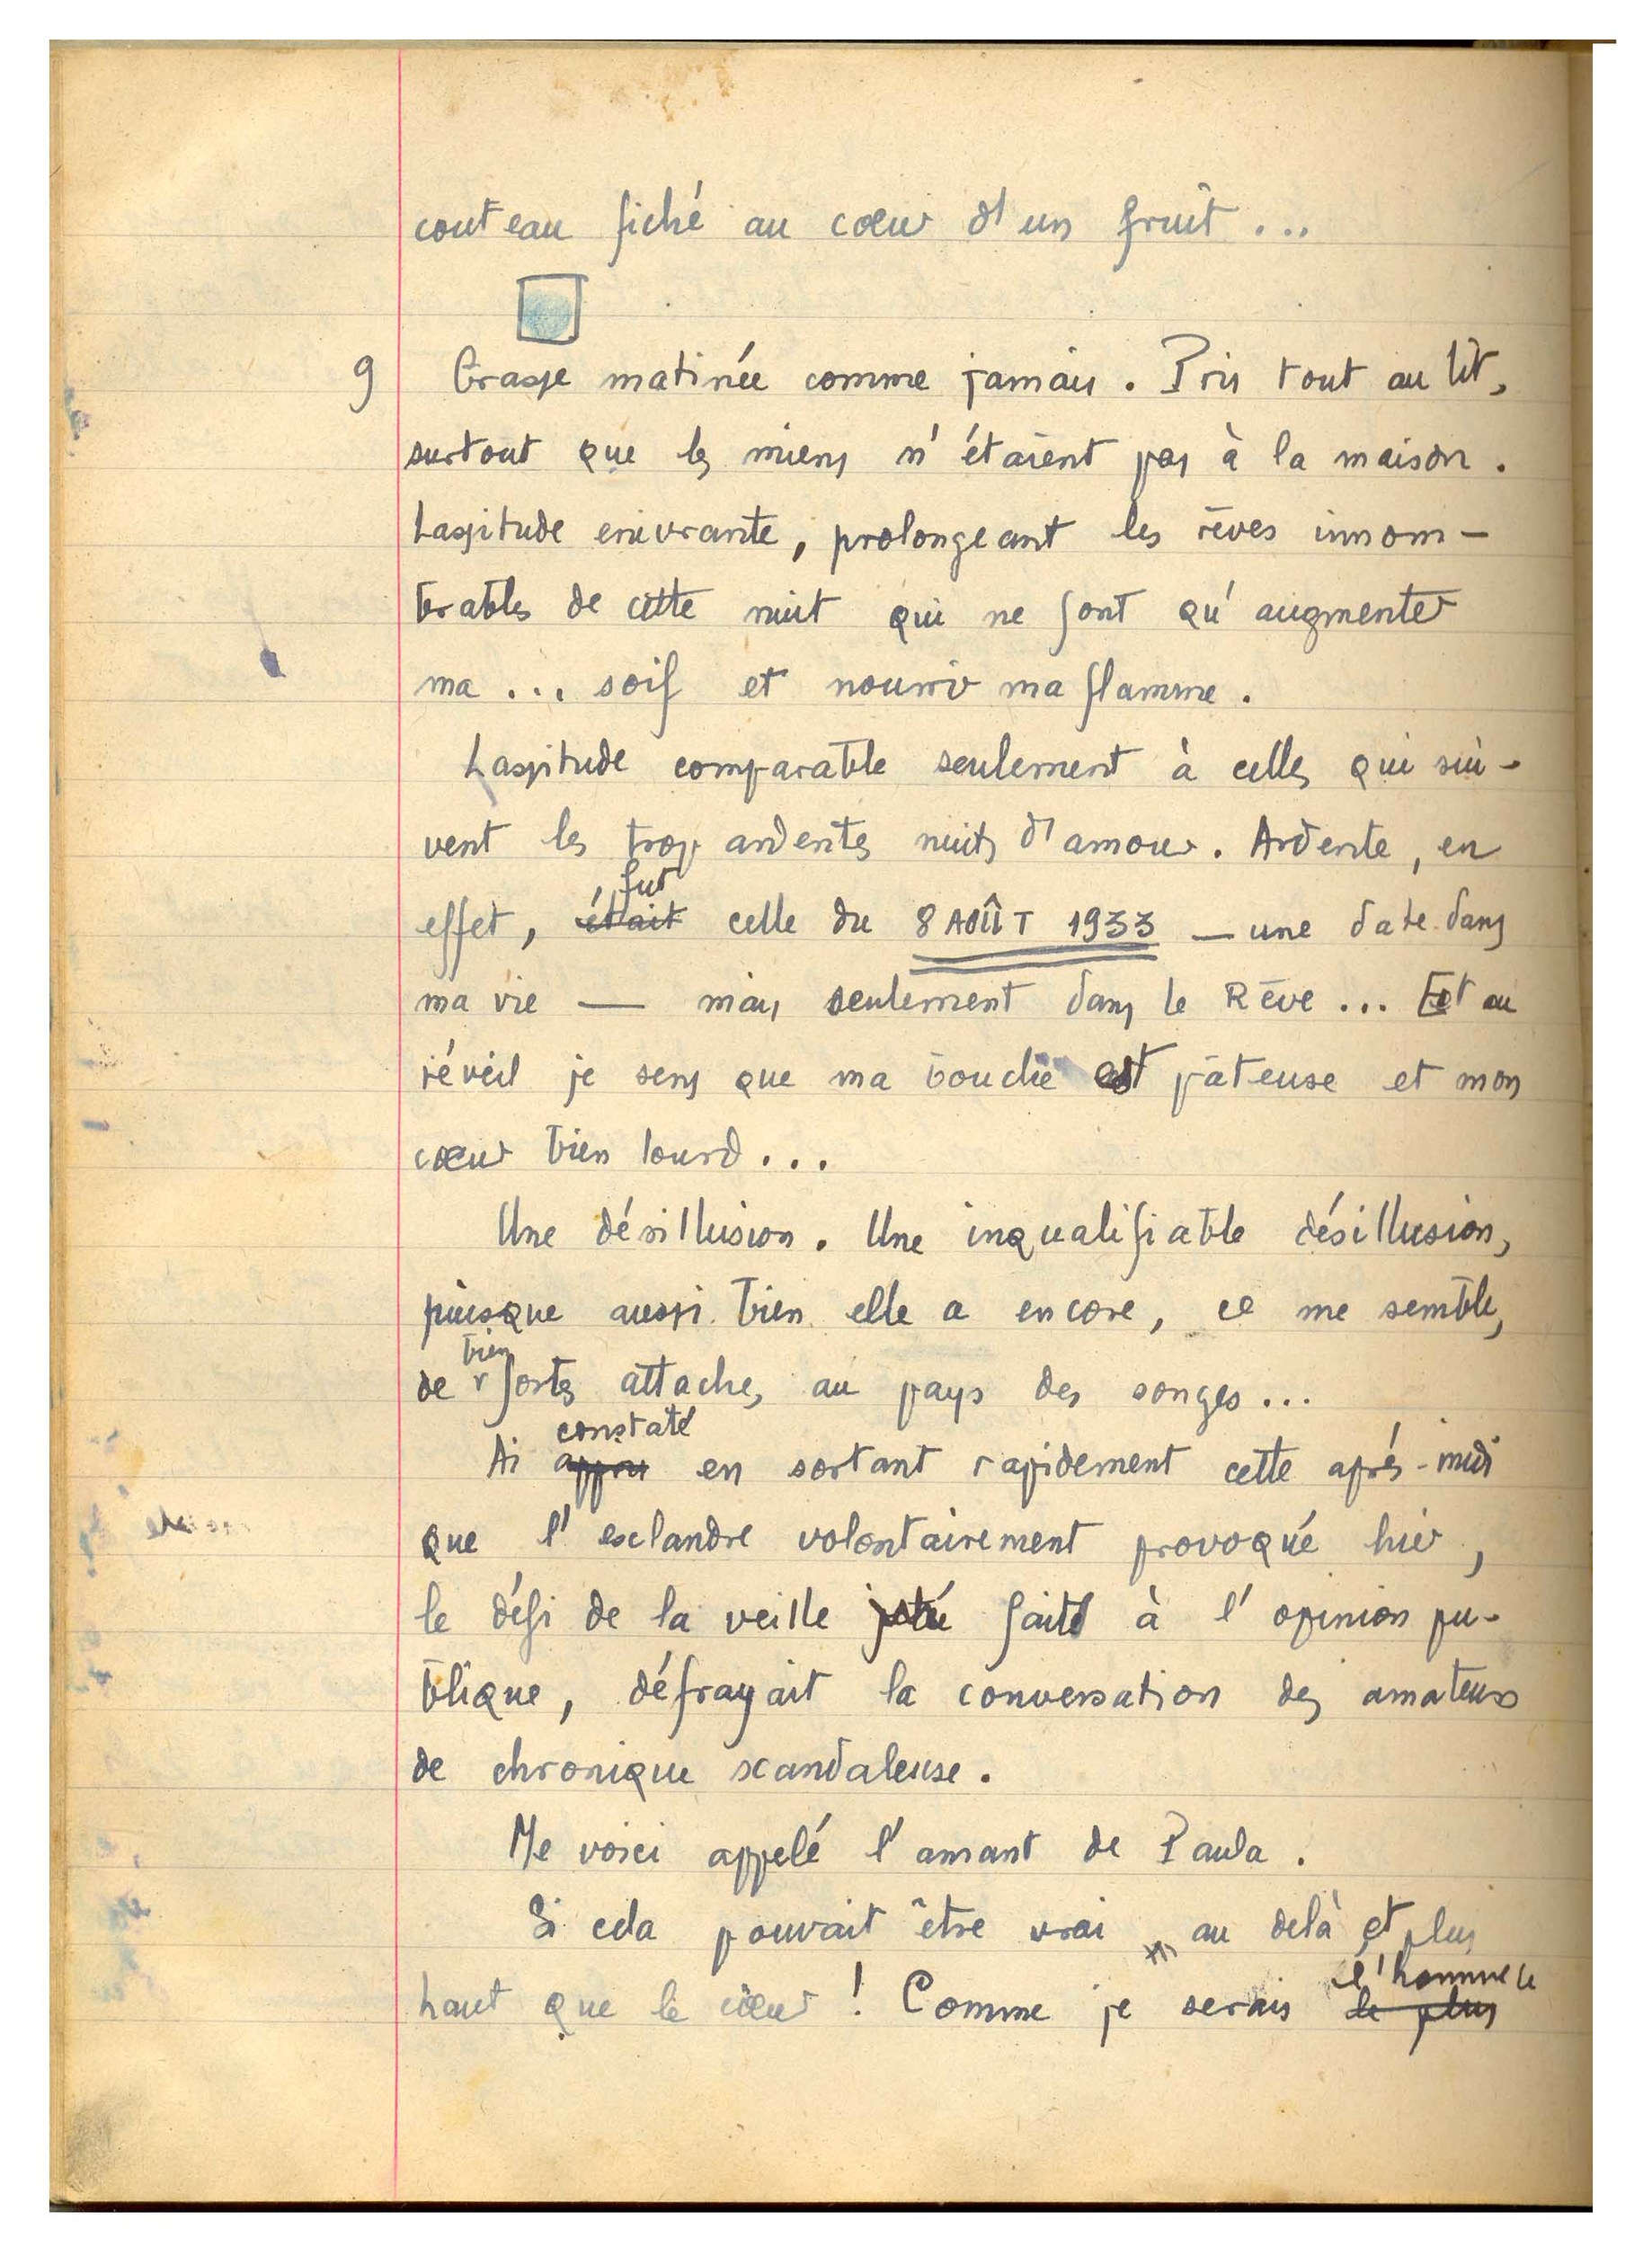 couteau fiché au cœur d'un fruit ...
9 Grasse matinée comme jamais. Pris tout au lit,
surtout que les miens n'étaient pas à la maison.
Lassitude enivrante, prolongeant les rêves innom-
brables de cette nuit qui ne font qu'augmenter
ma ... soif et nourrir ma flamme.
Lassitude comparable seulement à celles qui sui-
vent les trop ardentes nuits d'amour. Ardente, en
fut
effet, était celle du 8 AOÛT 1933 — une date dans
ma vie — mais seulement dans le Rêve ... Et au
réveil je sens que ma bouche est pâteuse et mon
cœur bien lourd ...
Une désillusion. Une inqualifiable désillusion,
puisque aussi bien elle a encore, ce me semble,
bien
de fortes attaches au pays des songes ...
constaté
Ai appris en sortant rapidement cette après-midi
que l'esclandre volontairement provoqué hier,
le défi de la veille jeté fait à l'opinion pu-
blique, défrayait la conversation des amateurs
de chronique scandaleuse.
Me voici appelé l'amant de Paula.
Si cela pouvait être vrai au delà et plus
l'homme le
haut que le cœur ! Comme je serais le plus